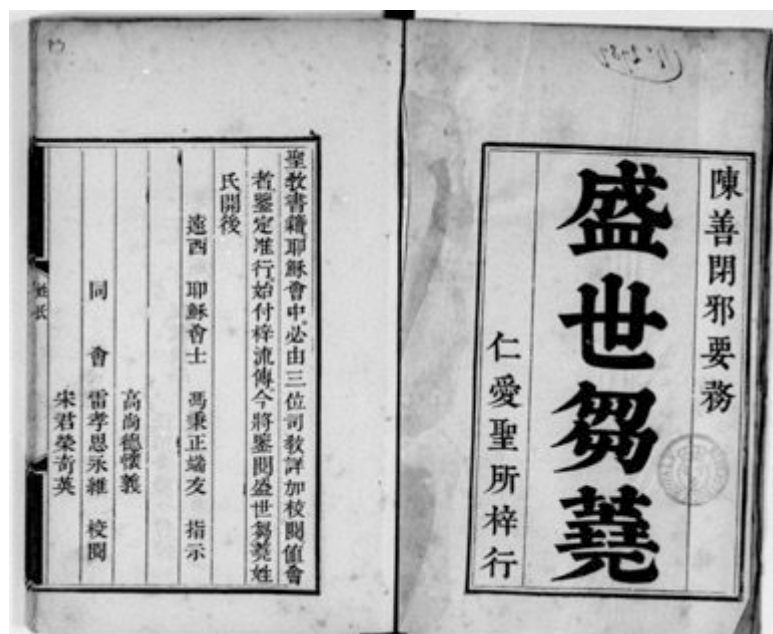 陳善閉邪要務
盛世芻蕘
仁愛聖所梓行
聖教書籍耶穌會中必由三位司敎詳加校閱値會
者鑒定准行始付梓流傳今將鑒閱盛世芻蕘姓
氏開後
遠西 耶穌會士 馮秉正端友 指示
高尚德懷義
同 會 雷孝思永維 校閱
宋君榮奇英
姓氏